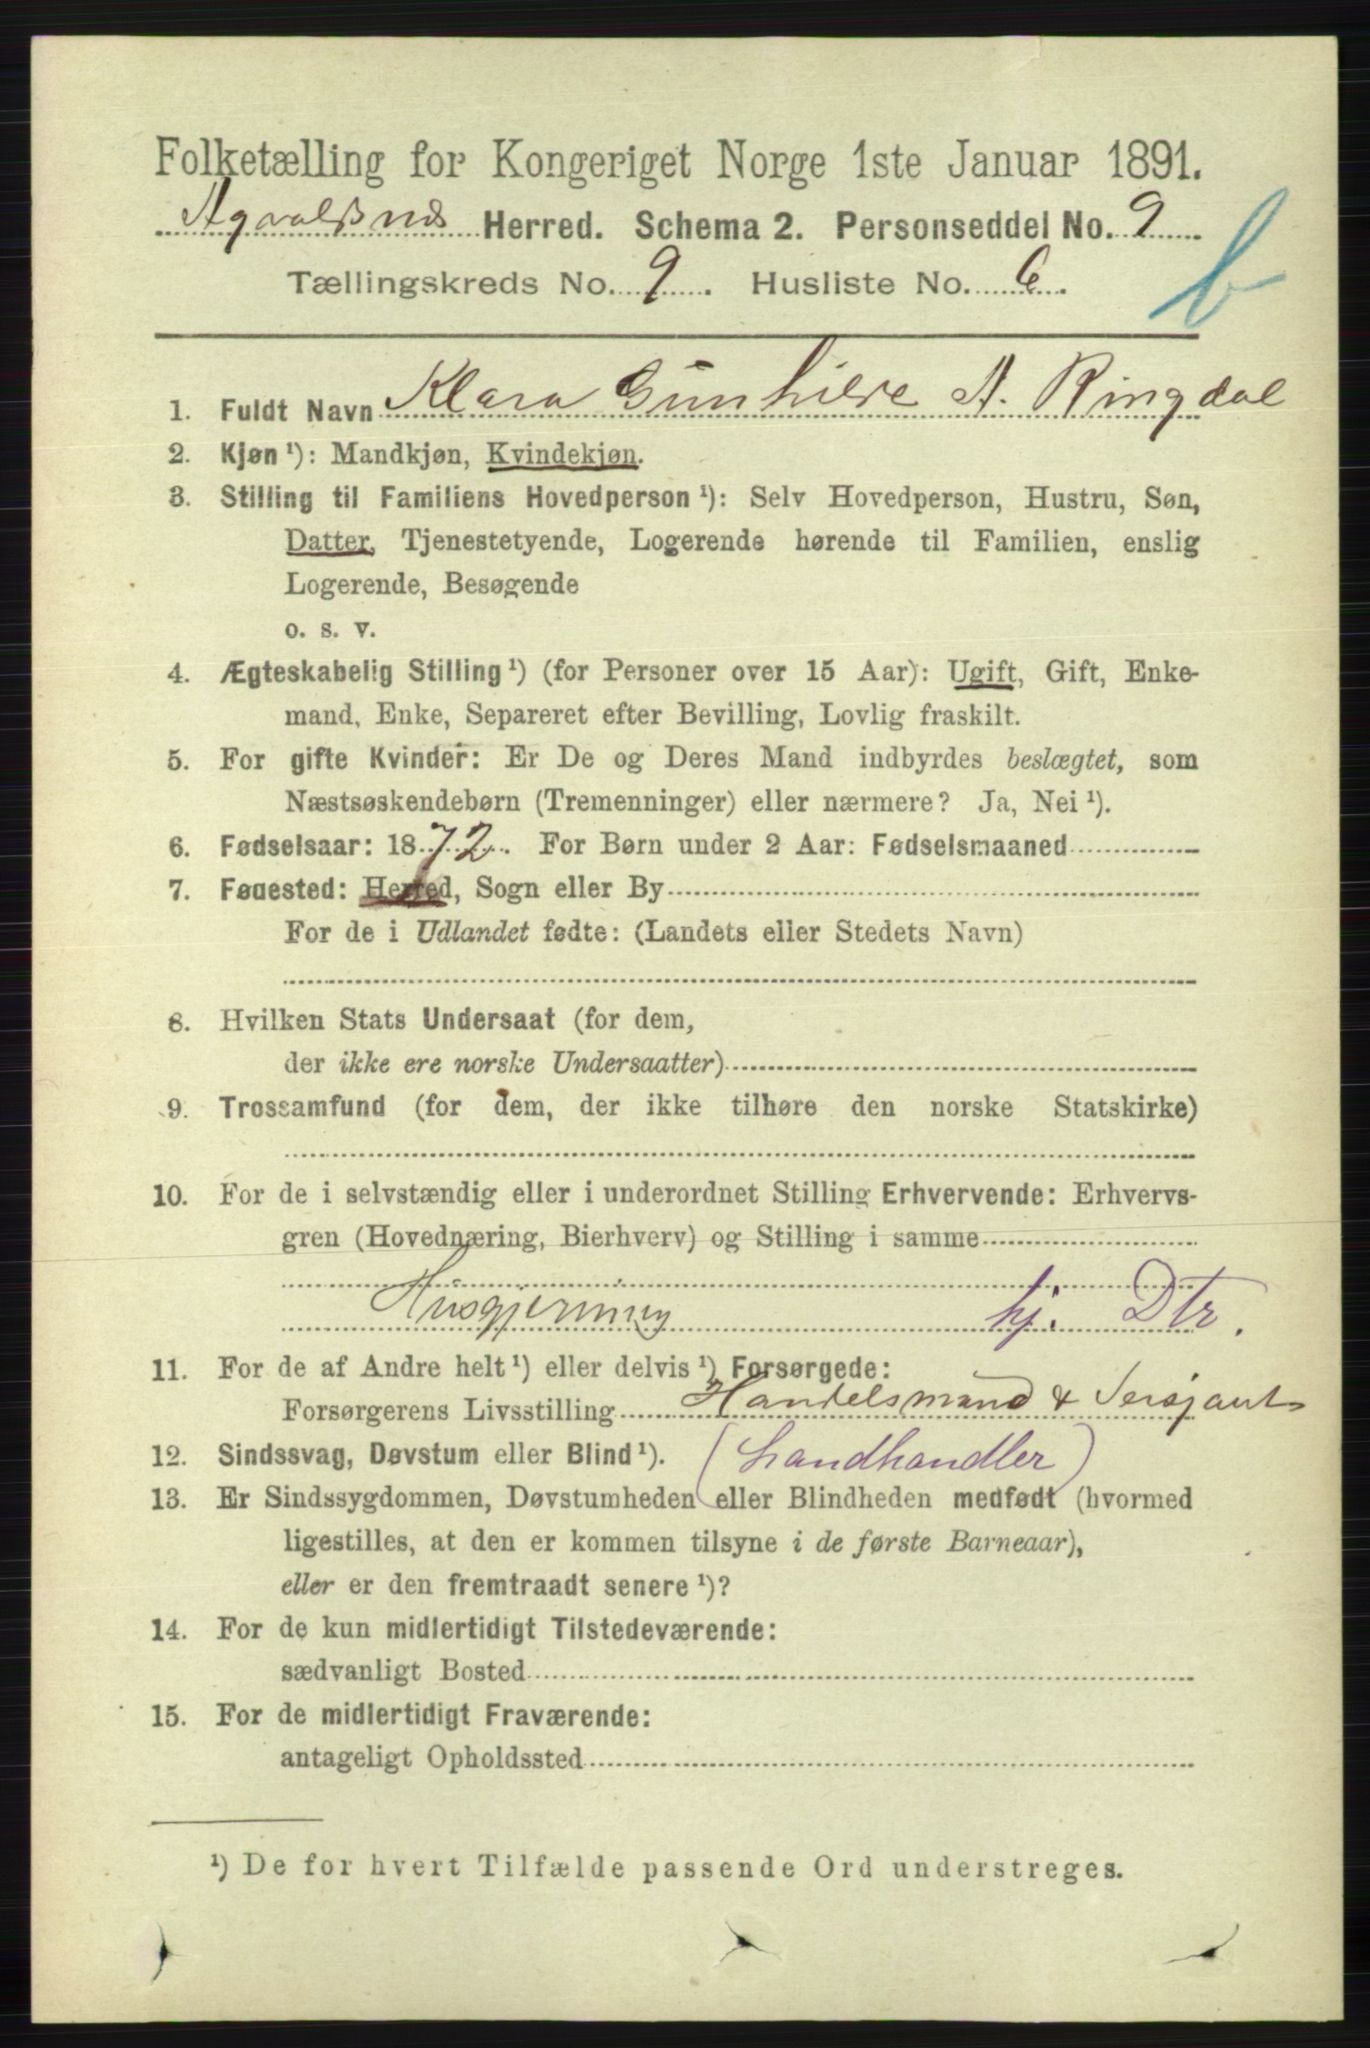 Folketælling for Kongeriget Norge 1ste Januar 1891.
Agvaldsnes Herred. Schema 2. Personseddel No. 9
b
Tællingskreds No. 9. Husliste No. 6.
1. Fuldt Navn Klara Gunhilde A. Ringdal
2. Kjøn ¹): Mandkjøn, Kvindekjøn.
3. Stilling til Familiens Hovedperson ¹): Selv Hovedperson, Hustru, Søn,
Datter, Tjenestetyende, Logerende hørende til Familien, enslig
Logerende, Besøgende
o. s. v.
4. Ægteskabelig Stilling ¹) (for Personer over 15 Aar): Ugift, Gift, Enke-
mand, Enke, Separeret efter Bevilling, Lovlig fraskilt.
5. For gifte Kvinder: Er De og Deres Mand indbyrdes beslægtet, som
Næstsøskendebørn (Tremenninger) eller nærmere? Ja, Nei ¹).
6. Fødselsaar: 1872. For Børn under 2 Aar: Fødselsmaaned
7. Fødested: Herred, Sogn eller By
For de i Udlandet fødte: (Landets eller Stedets Navn)
8. Hvilken Stats Undersaat (for dem,
der ikke ere norske Undersaatter)
9. Trossamfund (for dem, der ikke tilhøre den norske Statskirke)
10. For de i selvstændig eller i underordnet Stilling Erhvervende: Erhvervs-
gren (Hovednæring, Bierhverv) og Stilling i samme
Husgjerning hj. Dtr.
11. For de af Andre helt ¹) eller delvis ¹) Forsørgede:
Forsørgerens Livsstilling Handelsmand & Sersjant
12. Sindssvag, Døvstum eller Blind ¹). (Landhandler)
13. Er Sindssygdommen, Døvstumheden eller Blindheden medfødt (hvormed
ligestilles, at den er kommen tilsyne i de første Barneaar),
eller er den fremtraadt senere ¹)?
14. For de kun midlertidigt Tilstedeværende:
sædvanligt Bosted
15. For de midlertidigt Fraværende:
antageligt Opholdssted
¹) De for hvert Tilfælde passende Ord understreges.